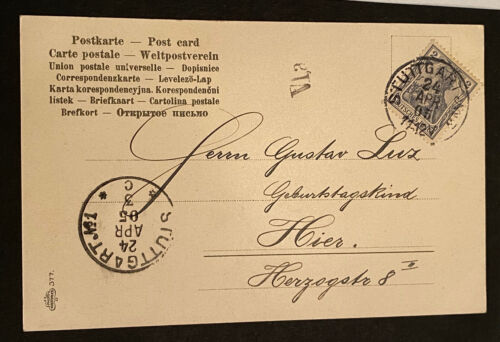 Postkarte — Post card
Carte postale — Weltpostverein
Union postale universelle — Dopisnice
Correspondenzkarte — Levelező-Lap
Karta korespondencyjna. Korespondenčni
listek — Briefkaart — Cartolina postale
Brefkort — Открытое письмо
VIa
STUTTGART
24
APR
11-12
Herrn Gustav Luz
Geburtstagskind
Hier.
Herzogstr 8 II
STUTTGART. No 1
24
APR
05
3
C
377.